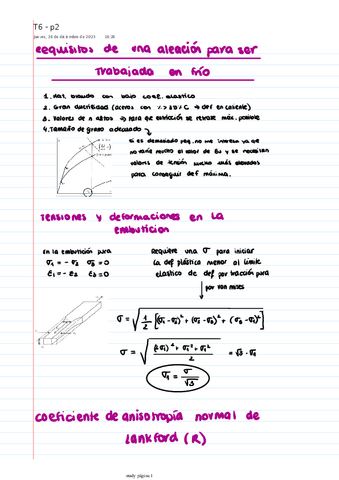 T6 - p2
jueves, 28 de diciembre de 2023 18:26
requisitos de una aleación para ser
trabajada en frío
1. Mat. blando con bajo coef. elástico
2. Gran ductilidad (aceros con → def en caliente)
3. Valores de n altos → para que estricción se retrase máx. posible
4. Tamaño de grano adecuado
si es demasiado peq. no me interesa ya que
no varía mucho el valor de y se necesitan
valores de tensión mucho más elevados
para conseguir def máxima.
Tensiones y deformaciones en la
embutición
En la embutición pura
σ₁ = - σ₂ σ₃ = 0
ε₁ = - ε₂ ε₃ = 0
Requiere una σ para iniciar
la def plástica menor al límite
elástico de def por tracción pura
por von mises
σ = √(1/2 [(σ₁ - σ₂)² + (σ₁ - σ₃)² + (σ₂ - σ₃)²])
σ = √(((2σ₁)² + σ₁² + σ₁²)/2) = √3 · σ₁
σ₁ = σ/√3
coeficiente de anisotropía normal de
Lankford (R)
study página 1